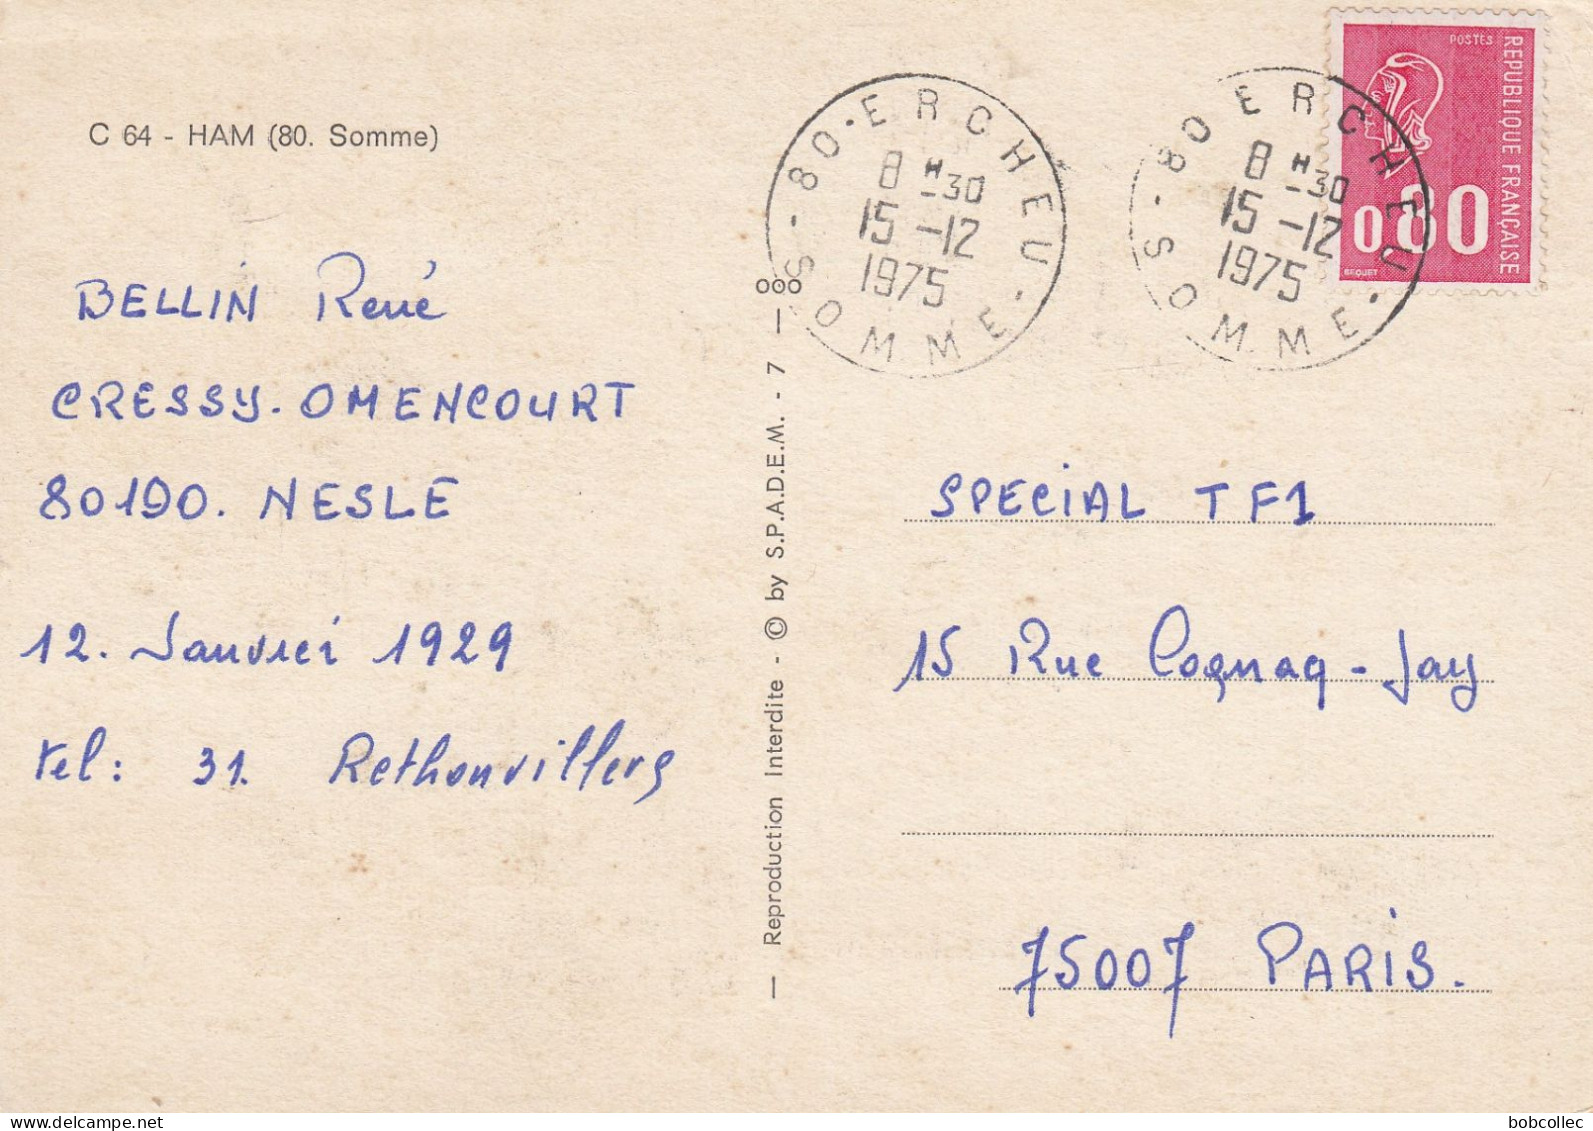 C 64 - HAM (80. Somme)
BELLIN René
CRESSY-OMENCOURT
80190. NESLE
12. Janvier 1929
tel: 31. Rethonvillers
— Reproduction Interdite - © by S.P.A.D.E.M. - 7 — ooo
80·ERCHEU·
8 H -30
15 -12
1975
- SOMME -
80 ERCHEU·
8 H -30
15 -12
1975
- SOMME -
POSTES
REPUBLIQUE FRANÇAISE
0.80
BEQUET
SPECIAL TF1
15 Rue Cognaq-Jay
75007 PARIS.
delcampe.net
bobcollec